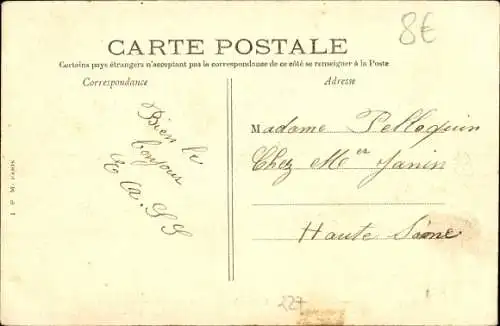 8€
CARTE POSTALE
Certains pays étrangers n'acceptant pas la correspondance de ce côté se renseigner à la Poste
Correspondance
Adresse
Bien le
bonjour
Madame Pelloquin
Chez Mer Janin
Haute Saône
I. P. M. PARIS
227